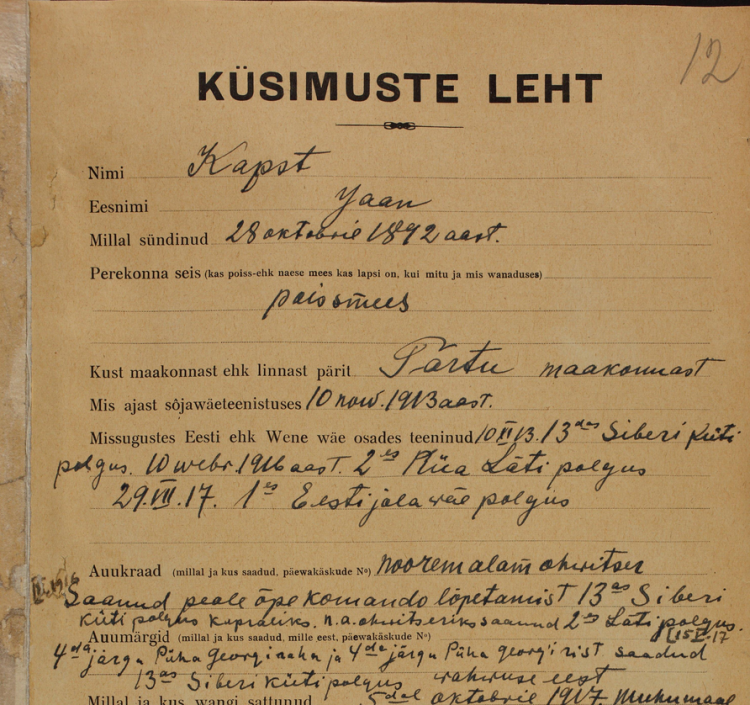 12
KÜSIMUSTE LEHT
Nimi Kapst
Eesnimi Jaan
Millal sündinud 28 oktobrie 1892 aast.
Perekonna seis (kas poiss-ehk naese mees kas lapsi on, kui mitu ja mis wanaduses)
poissmees
Kust maakonnast ehk linnast pärit Tartu maakonnast
Mis ajast sôjawäeteenistuses 10 now. 1913 aast.
Missugustes Eesti ehk Wene wäe osades teeninud 13 des Siberi küti
polgus. 10 webr. 1916 aast. 2 es Riia Läti polgus
29.VII.17. 1 es Eesti jalawäe polgus
Auukraad (millal ja kus saadud, päewakäskude No) nooremalam ohwitser
Saanud peale õpekomando lõpetamist 13 as Siberi
küti polgus kapraliks. n.a. ohwitseriks saanud 2 es Läti polgus.
Auumärgid (millal ja kus saadud, mille eest, päewakäskude No)
4 da järgu Püha Georgi raha ja 4 da järgu Püha Georgi rist saadud
13 as Siberi küti polgus wahwuse eest
Millal ja kus wangi sattunud 5 dal oktobrie 1917 Muhumaal